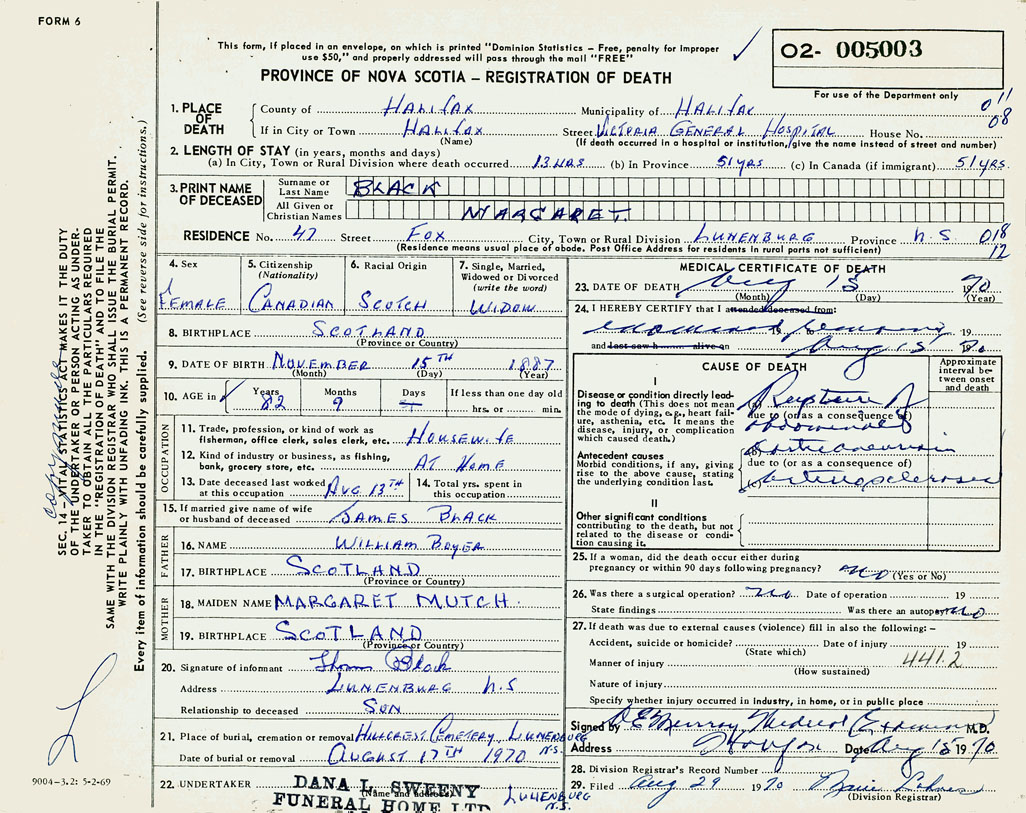 FORM 6
This form, if placed in an envelope, on which is printed "Dominion Statistics – Free, penalty for improper
use $50," and properly addressed will pass through the mail "FREE"
PROVINCE OF NOVA SCOTIA – REGISTRATION OF DEATH
02- 005003
For use of the Department only
011
08
1. PLACE OF DEATH
County of HALIFAX Municipality of HALIFAX
If in City or Town HALIFAX Street VICTORIA GENERAL HOSPITAL House No.
(Name) (If death occurred in a hospital or institution, give the name instead of street and number)
2. LENGTH OF STAY (in years, months and days)
(a) In City, Town or Rural Division where death occurred 13 HRS (b) In Province 51 YRS (c) In Canada (if immigrant) 51 YRS.
3. PRINT NAME OF DECEASED
Surname or Last Name BLACK
All Given or Christian Names MARGARET.
RESIDENCE No. 47 Street FOX City, Town or Rural Division LUNENBURG Province N.S. 018
(Residence means usual place of abode. Post Office Address for residents in rural parts not sufficient) 12
4. Sex FEMALE
5. Citizenship (Nationality) CANADIAN
6. Racial Origin SCOTCH
7. Single, Married, Widowed or Divorced (write the word) WIDOW
8. BIRTHPLACE SCOTLAND
(Province or Country)
9. DATE OF BIRTH NOVEMBER 15TH 1887
(Month) (Day) (Year)
10. AGE in Years 82 Months 9 Days If less than one day old hrs. or min.
OCCUPATION
11. Trade, profession, or kind of work as fisherman, office clerk, sales clerk, etc. HOUSEWIFE
12. Kind of industry or business, as fishing, bank, grocery store, etc. AT HOME
13. Date deceased last worked at this occupation AUG 13TH
14. Total yrs. spent in this occupation
15. If married give name of wife or husband of deceased JAMES BLACK
FATHER
16. NAME WILLIAM BOYER
17. BIRTHPLACE SCOTLAND
(Province or Country)
MOTHER
18. MAIDEN NAME MARGARET MUTCH.
19. BIRTHPLACE SCOTLAND
(Province or Country)
20. Signature of informant Black
Address LUNENBURG N.S
Relationship to deceased SON
21. Place of burial, cremation or removal HILLCREST CEMETERY LUNENBURG N.S.
Date of burial or removal AUGUST 17TH 1970
22. UNDERTAKER DANA L. SWEENY
(Name and address)
FUNERAL HOME LTD
LUNENBURG N.S.
MEDICAL CERTIFICATE OF DEATH
23. DATE OF DEATH Aug 15 1970
(Month) (Day) (Year)
24. I HEREBY CERTIFY that I attended deceased from:
examined 19 to 19
and last saw h alive on Aug 15 70
CAUSE OF DEATH
Approximate interval between onset and death
I
Disease or condition directly leading to death (This does not mean the mode of dying, e.g., heart failure, asthenia, etc. It means the disease, injury, or complication which caused death.)
(a) Rupture of
due to (or as a consequence of)
abdominal
Antecedent causes
Morbid conditions, if any, giving rise to the above cause, stating the underlying condition last.
(b) aortic aneurism
due to (or as a consequence of)
(c) arteriosclerosis
II
Other significant conditions
contributing to the death, but not related to the disease or condition causing it.
25. If a woman, did the death occur either during
pregnancy or within 90 days following pregnancy? no (Yes or No)
26. Was there a surgical operation? no Date of operation 19
State findings Was there an autopsy no
27. If death was due to external causes (violence) fill in also the following: –
Accident, suicide or homicide? Date of injury 19
(State which)
Manner of injury 441.2
(How sustained)
Nature of injury
Specify whether injury occurred in industry, in home, or in public place
Signed by Murray Medical Examiner M.D.
Address Halifax Date Aug 15 1970
28. Division Registrar's Record Number
29. Filed Aug 29 1970
(Division Registrar)
SEC. 14 – VITAL STATISTICS ACT MAKES IT THE DUTY
OF THE UNDERTAKER OR PERSON ACTING AS UNDER-
TAKER TO OBTAIN ALL THE PARTICULARS REQUIRED
IN THE "REGISTRATION OF DEATH" AND TO FILE THE
SAME WITH THE DIVISION REGISTRAR WHO SHALL ISSUE THE BURIAL PERMIT.
WRITE PLAINLY WITH UNFADING INK. THIS IS A PERMANENT RECORD.
Every item of information should be carefully supplied. (See reverse side for instructions.)
9004-3.2: 5-2-69